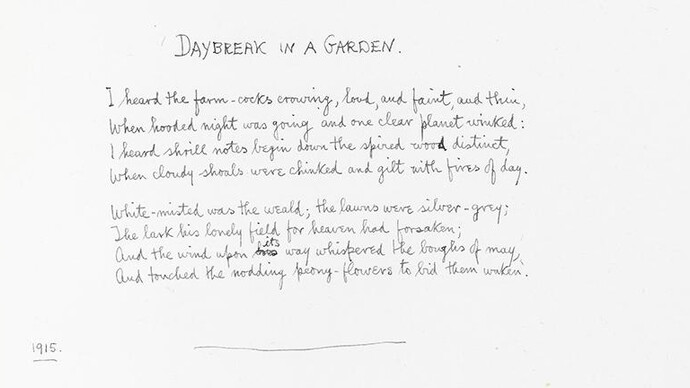 DAYBREAK IN A GARDEN.
I heard the farm-cocks crowing, loud, and faint, and thin,
When hooded night was going and one clear planet winked:
I heard shrill notes begin down the spired wood distinct,
When cloudy shoals were chinked and gilt with fires of day.
White-misted was the weald; the lawns were silver-grey;
The lark his lonely field for heaven had forsaken;
And the wind upon its way whispered the boughs of may,
And touched the nodding peony-flowers to bid them waken.
1915.